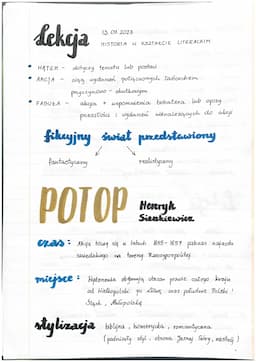 Lekcja
13.09.2023
HISTORIA W KSZTAŁCIE LITERACKIM
WĄTEK - dotyczy tematu lub postaci
AKCJA - ciąg wydarzeń połączonych łańcuchem
przyczynowo - skutkowym
FABUŁA - akcja + wspomnienia bohatera lub opisy
przeszłości i wydarzeń
do akcji
fikcyjny świat przedstawiony
fantastyczny
realistyczny
POTOP
Henryk
Sienkiewicz
czas:
Akcja toczy się w latach 1655-1657 podczas najazdu
szwedzkiego na tereny Rzeczypospolitej
miejsce:
Wydarzenia obejmują obszar prawie całego kraju
od Wielkopolski po Litwę oraz południe Polski:
Śląsk, Małopolskę
stylizacja
biblijna, homerycka, romantyczna
(podniosły styl, obrona Jasnej Góry,